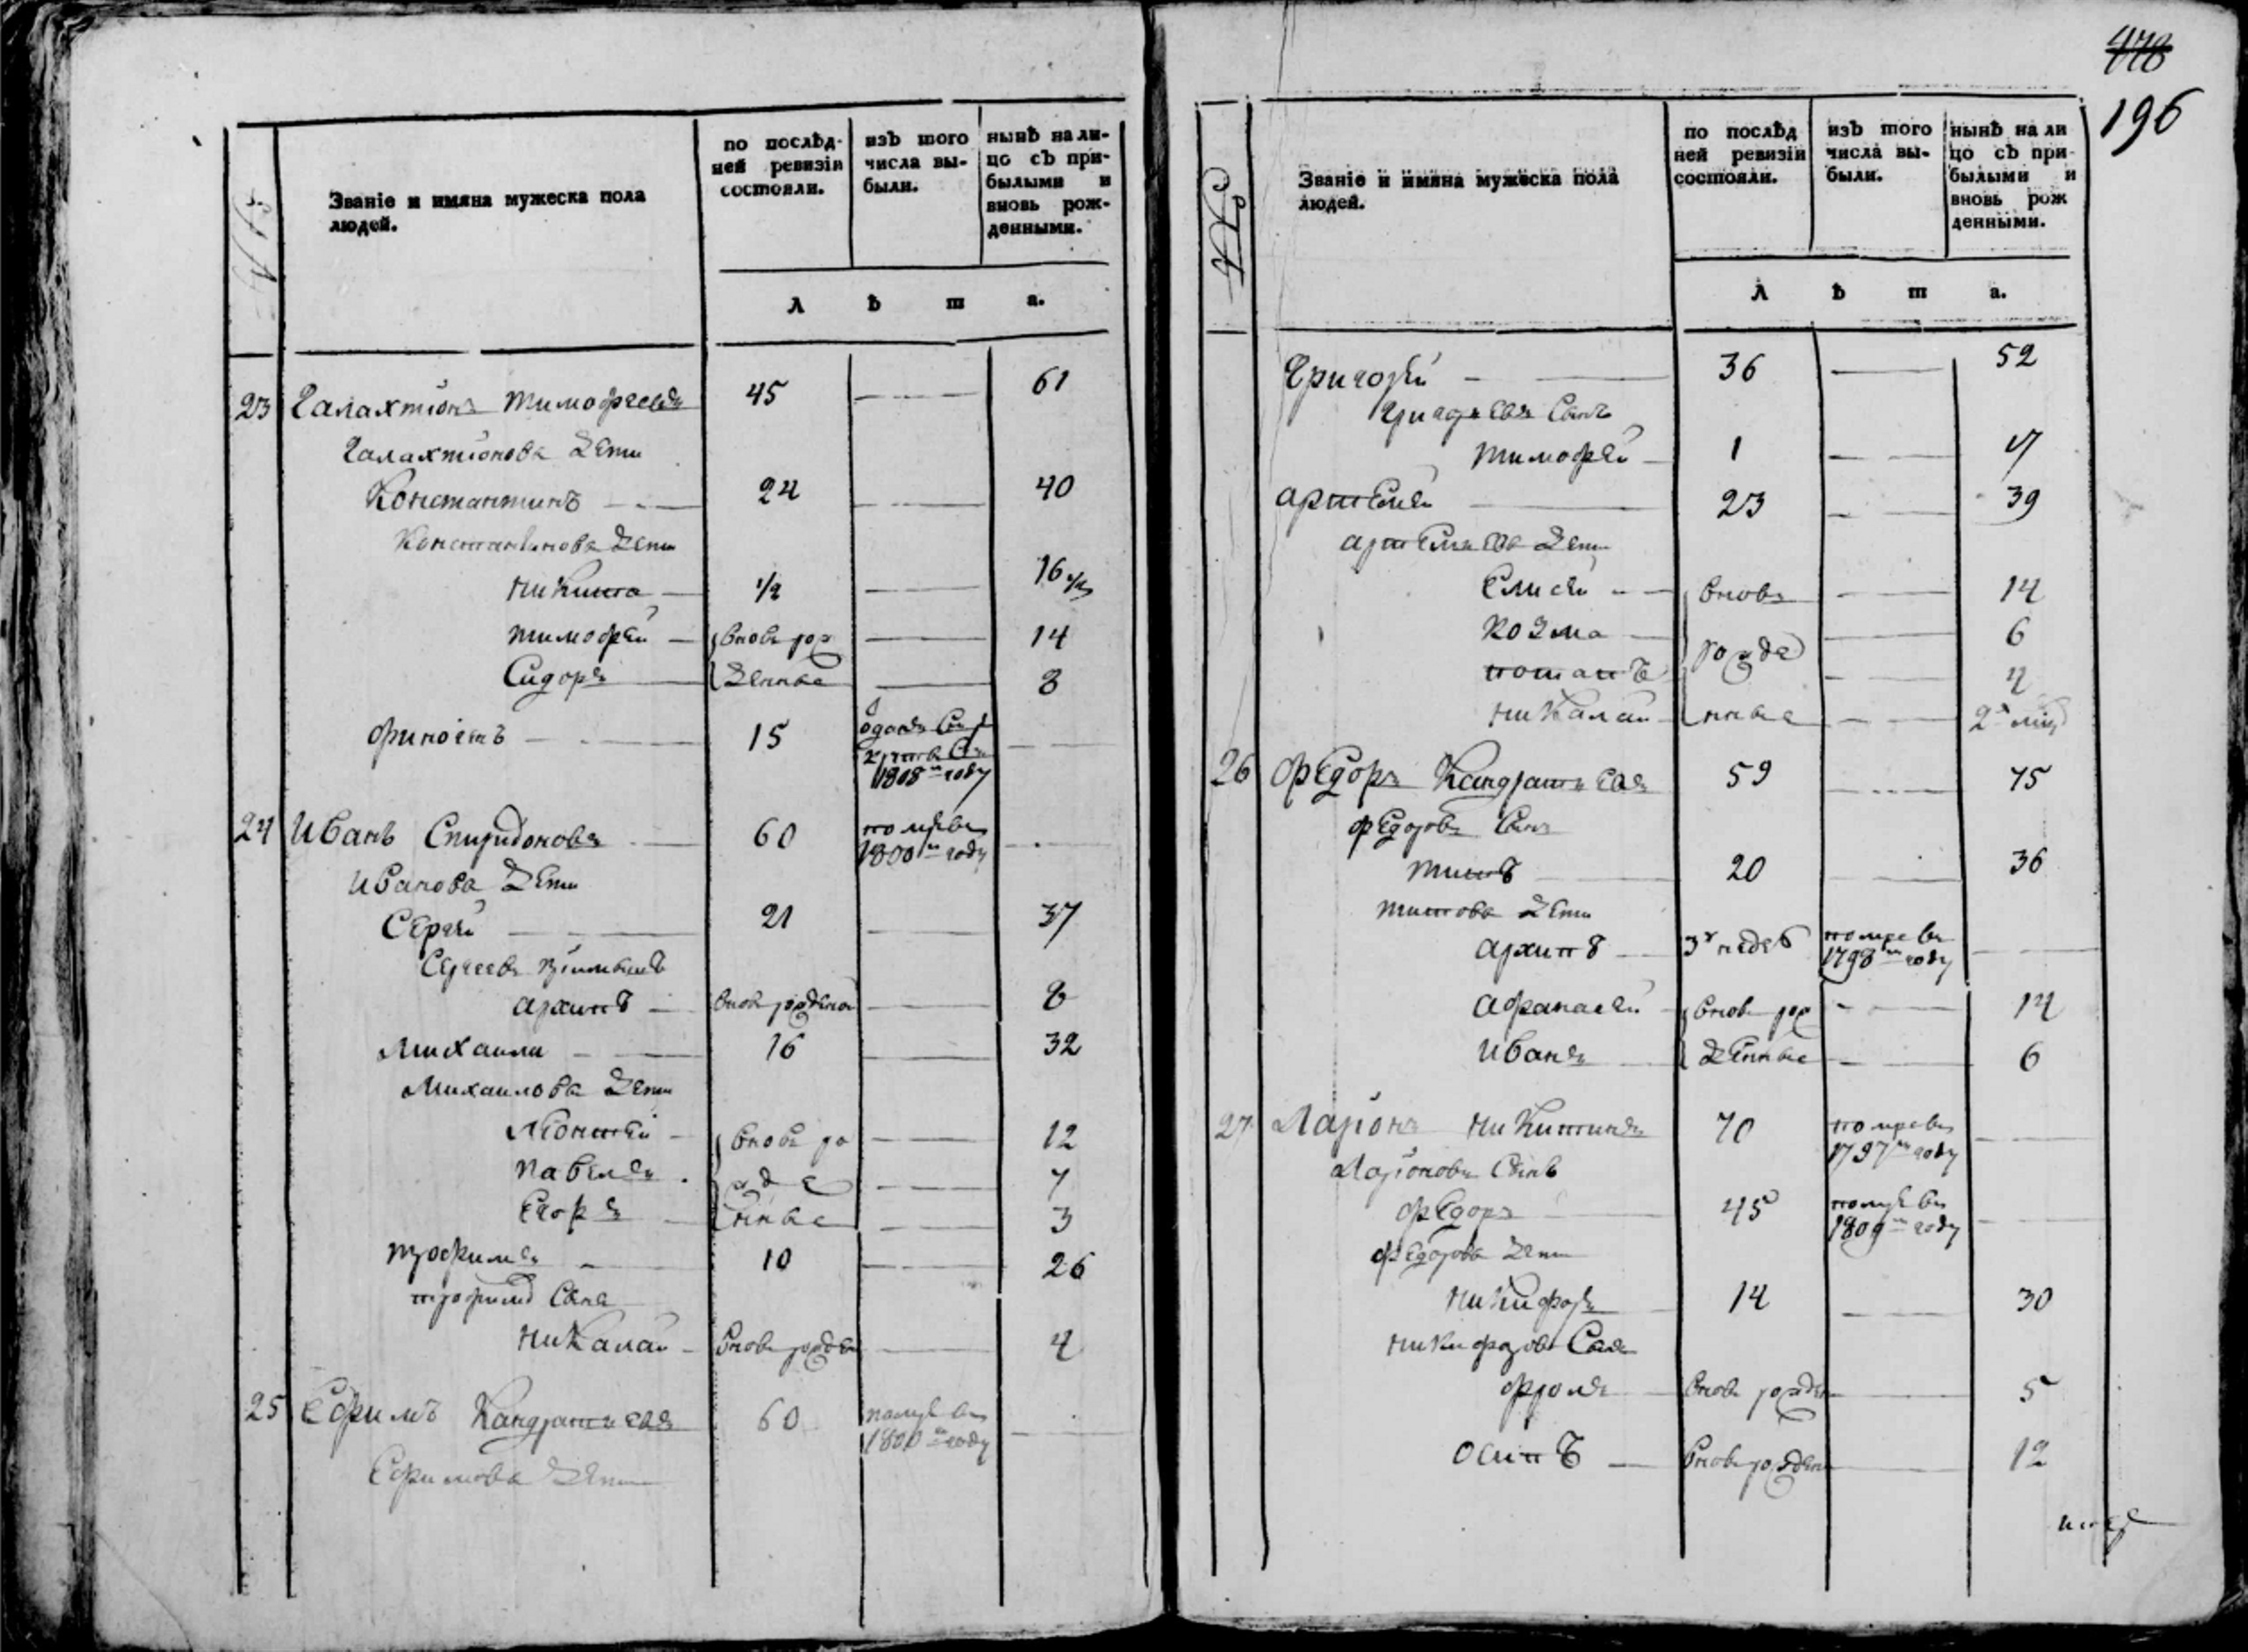 Званіе и имяна мужеска пола
людей.
по послѣд-
ней ревизіи
состояли.
изъ того
числа вы-
были.
нынѣ на ли-
цо съ при-
былыми и
вновь рож-
денными.
л ѣ т а.
23 Галахтіонъ Тимофеевъ 45 — 61
Галахтіонова дети
Константинъ — 24 — 40
Константинова дети
Никита — 1/2 — 16 1/2
Тимофей — вновь рож — 14
Сидоръ — денные — 8
15
1808м году
24 Иванъ Спиридоновъ — 60 помре въ
1800м году
Иванова дети
Сергей — 21 — 37
Сергеевъ
Архипъ — вновь рожденой — 8
Михаила — 16 — 32
Михаилова дети
Леонтей — вновь ро — 12
Павелъ — жде — 7
Егоръ — нные — 3
Трофимъ — 10 — 26
Трофимо сынъ
Никалаи — вновь рожден — 4
25 Ефимъ Кандратьевъ 60 помре въ
1800м году
Ефимова дети
478
196
№
Званіе и имяна мужеска пола
людей.
по послѣд
ней ревизіи
состояли.
изъ того
числа вы-
были.
нынѣ на ли
цо съ при-
былыми и
вновь рож
денными.
л ѣ т а.
Григорей — 36 — 52
Григорьевъ сынъ
Тимофей — 1 — 17
Артемей — 23 — 39
Артемьева дети
Елисей — вновь — 14
Козма — рожде — 6
Потапъ — 4
Никалаи — нные — 2х мц
26 Федоръ Кандратьевъ 59 — 75
Федоровъ сынъ
Титъ — 20 — 36
Титова дети
Архипъ — 3х недел помре въ
1798м году
Афанасей — вновь рож — 14
Иванъ — денные — 6
27 Ларіонъ Никитинъ 70 помре въ
1797м году
Ларіоновъ сынъ
Федоръ — 45 помре въ
1809м году
Федорова дети
Никифоръ — 14 — 30
Никифоровъ сынъ
Фролъ — вновь рожден — 5
Осипъ — вновь рожден — 12